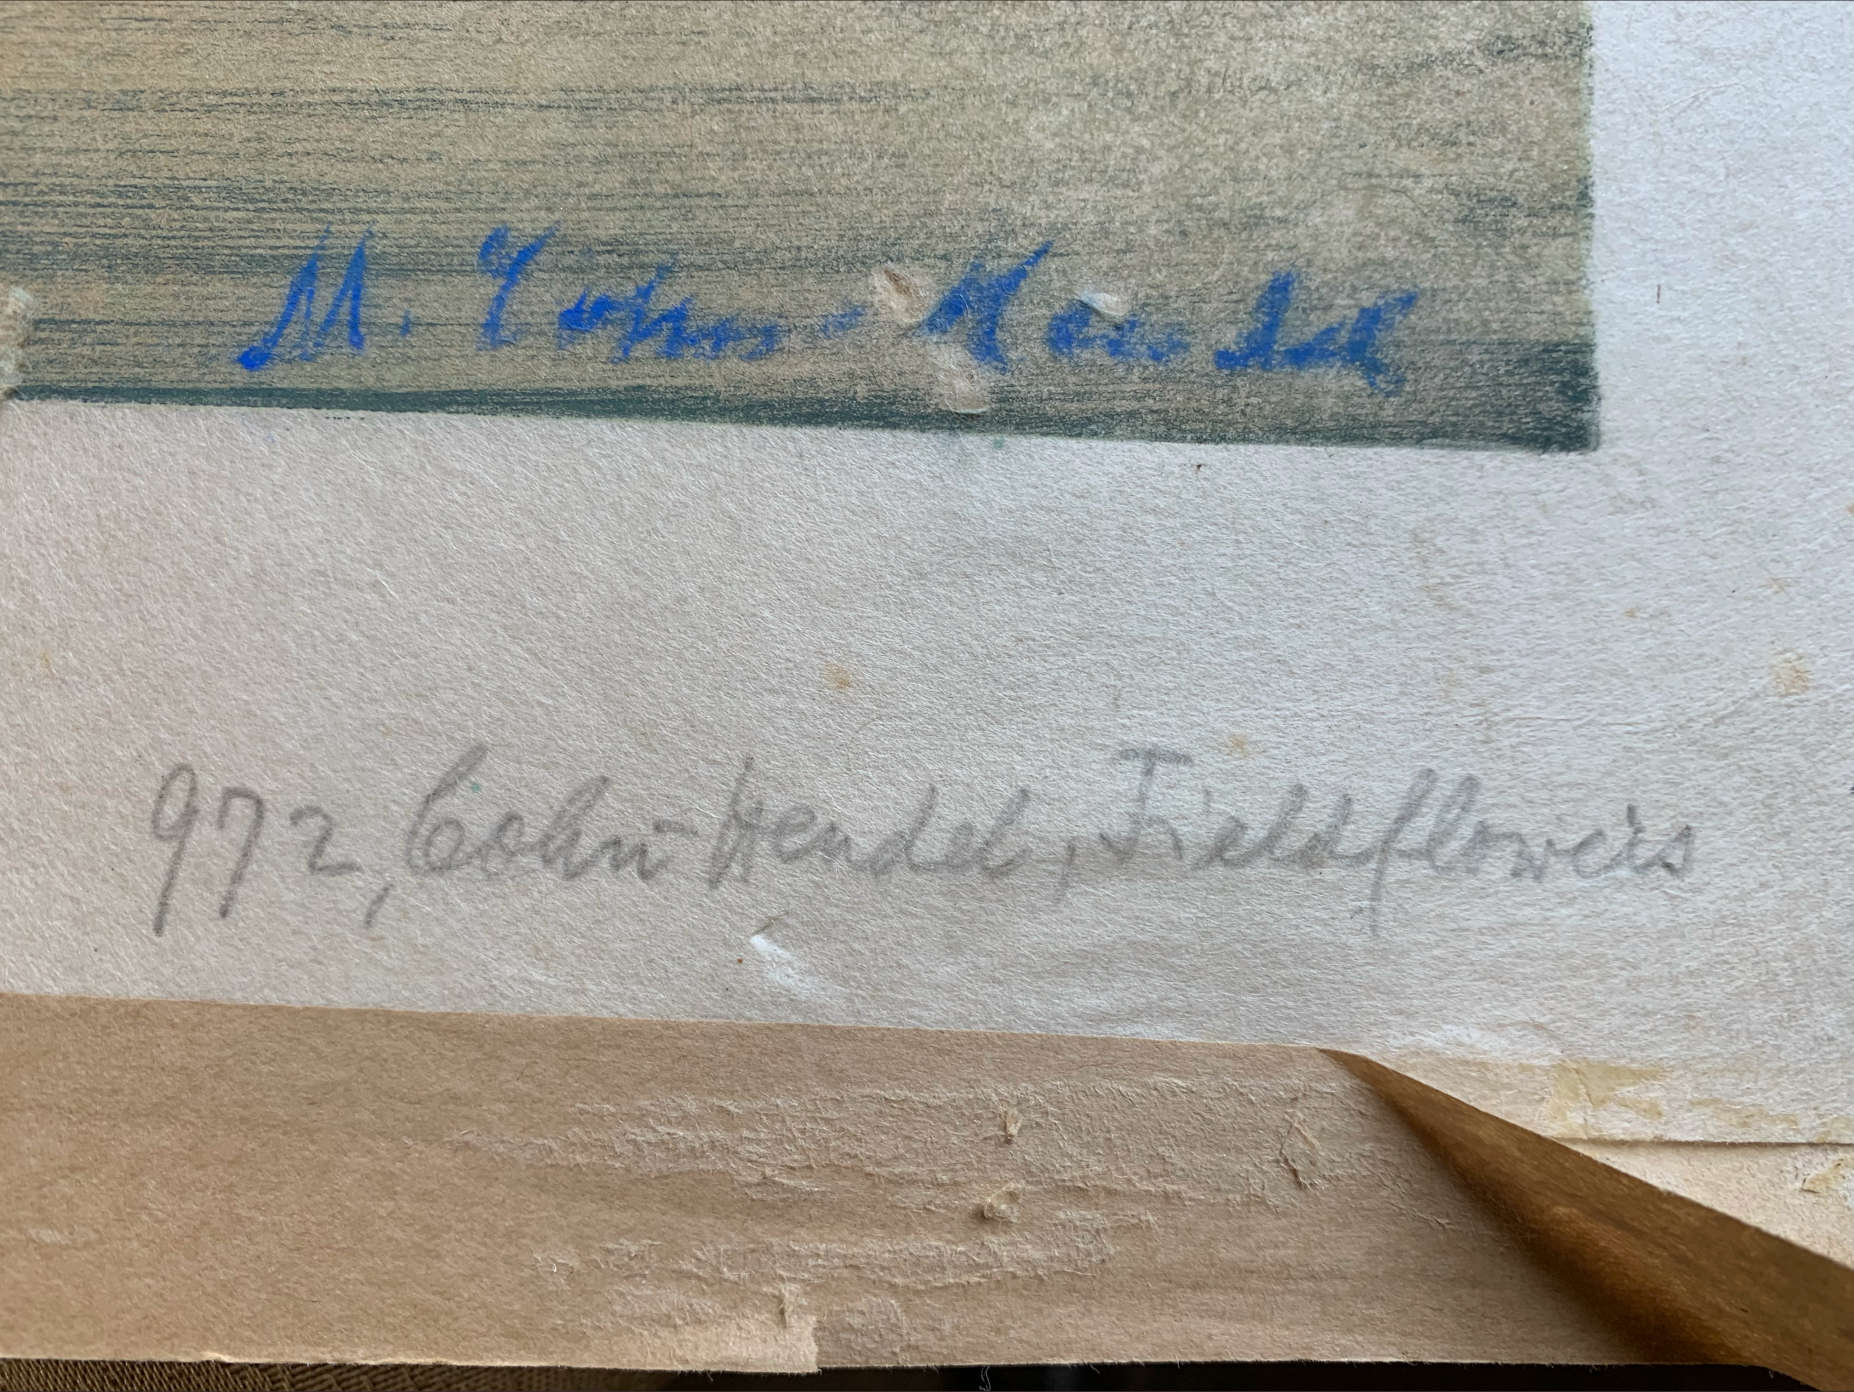 M. Cohn-Hendel
972, Cohn-Hendel, Fieldflowers